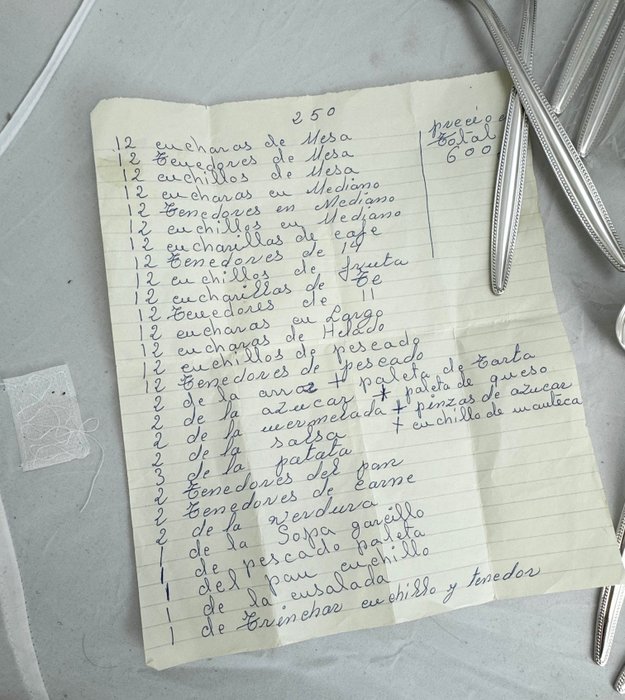 250
precio
total
600
12 cucharas de Mesa
12 Tenedores de Mesa
12 cuchillos de Mesa
12 cucharas en Mediano
12 Tenedores en Mediano
12 cuchillos en Mediano
12 cucharillas de cafe
12 Tenedores de 14
12 cuchillos de fruta
12 cucharillas de Te
12 Tenedores de 11
12 cucharas en Largo
12 cucharas de Helado
12 cuchillos de pescado
12 Tenedores de pescado
2 de la arroz + paleta de tarta
2 de la azucar + paleta de queso
2 de la mermelada + pinzas de azucar
2 de la salsa + cuchillo de manteca
3 de la patata
2 Tenedores del pan
2 Tenedores de carne
2 de la verdura
1 de la Sopa garcillo
1 de pescado paleta
1 del pan cuchillo
1 de la ensalada
1 de Trinchar cuchillo y tenedor